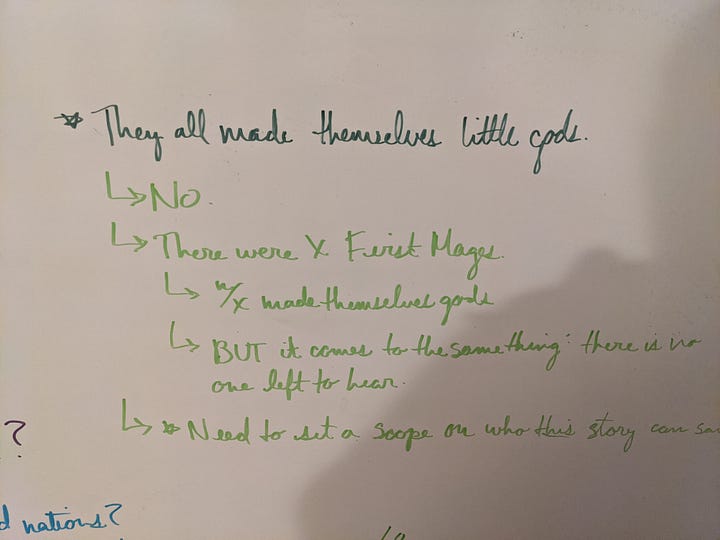 ☆ They all made themselves little gods.
↳ No.
↳ There were X First Mages.
↳ n/X made themselves gods
↳ BUT it comes to the same thing: there is no
one left to hear.
↳ ☆ Need to set a scope on who this story can
?
nations?